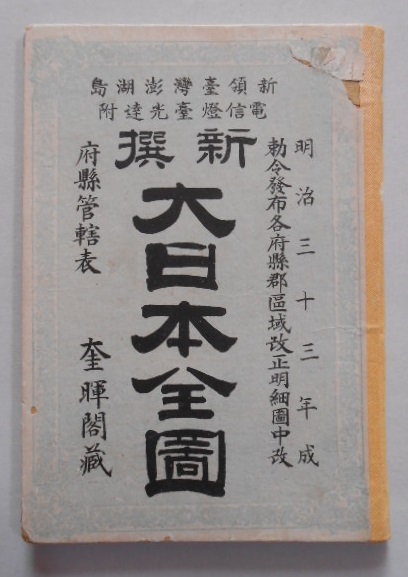 新領臺灣澎湖島
電信燈臺光達附
明治三十三年成
勅令發布各府縣郡區域改正明細圖中改
新撰
大日本全圖
府縣管轄表
奎暉閣藏